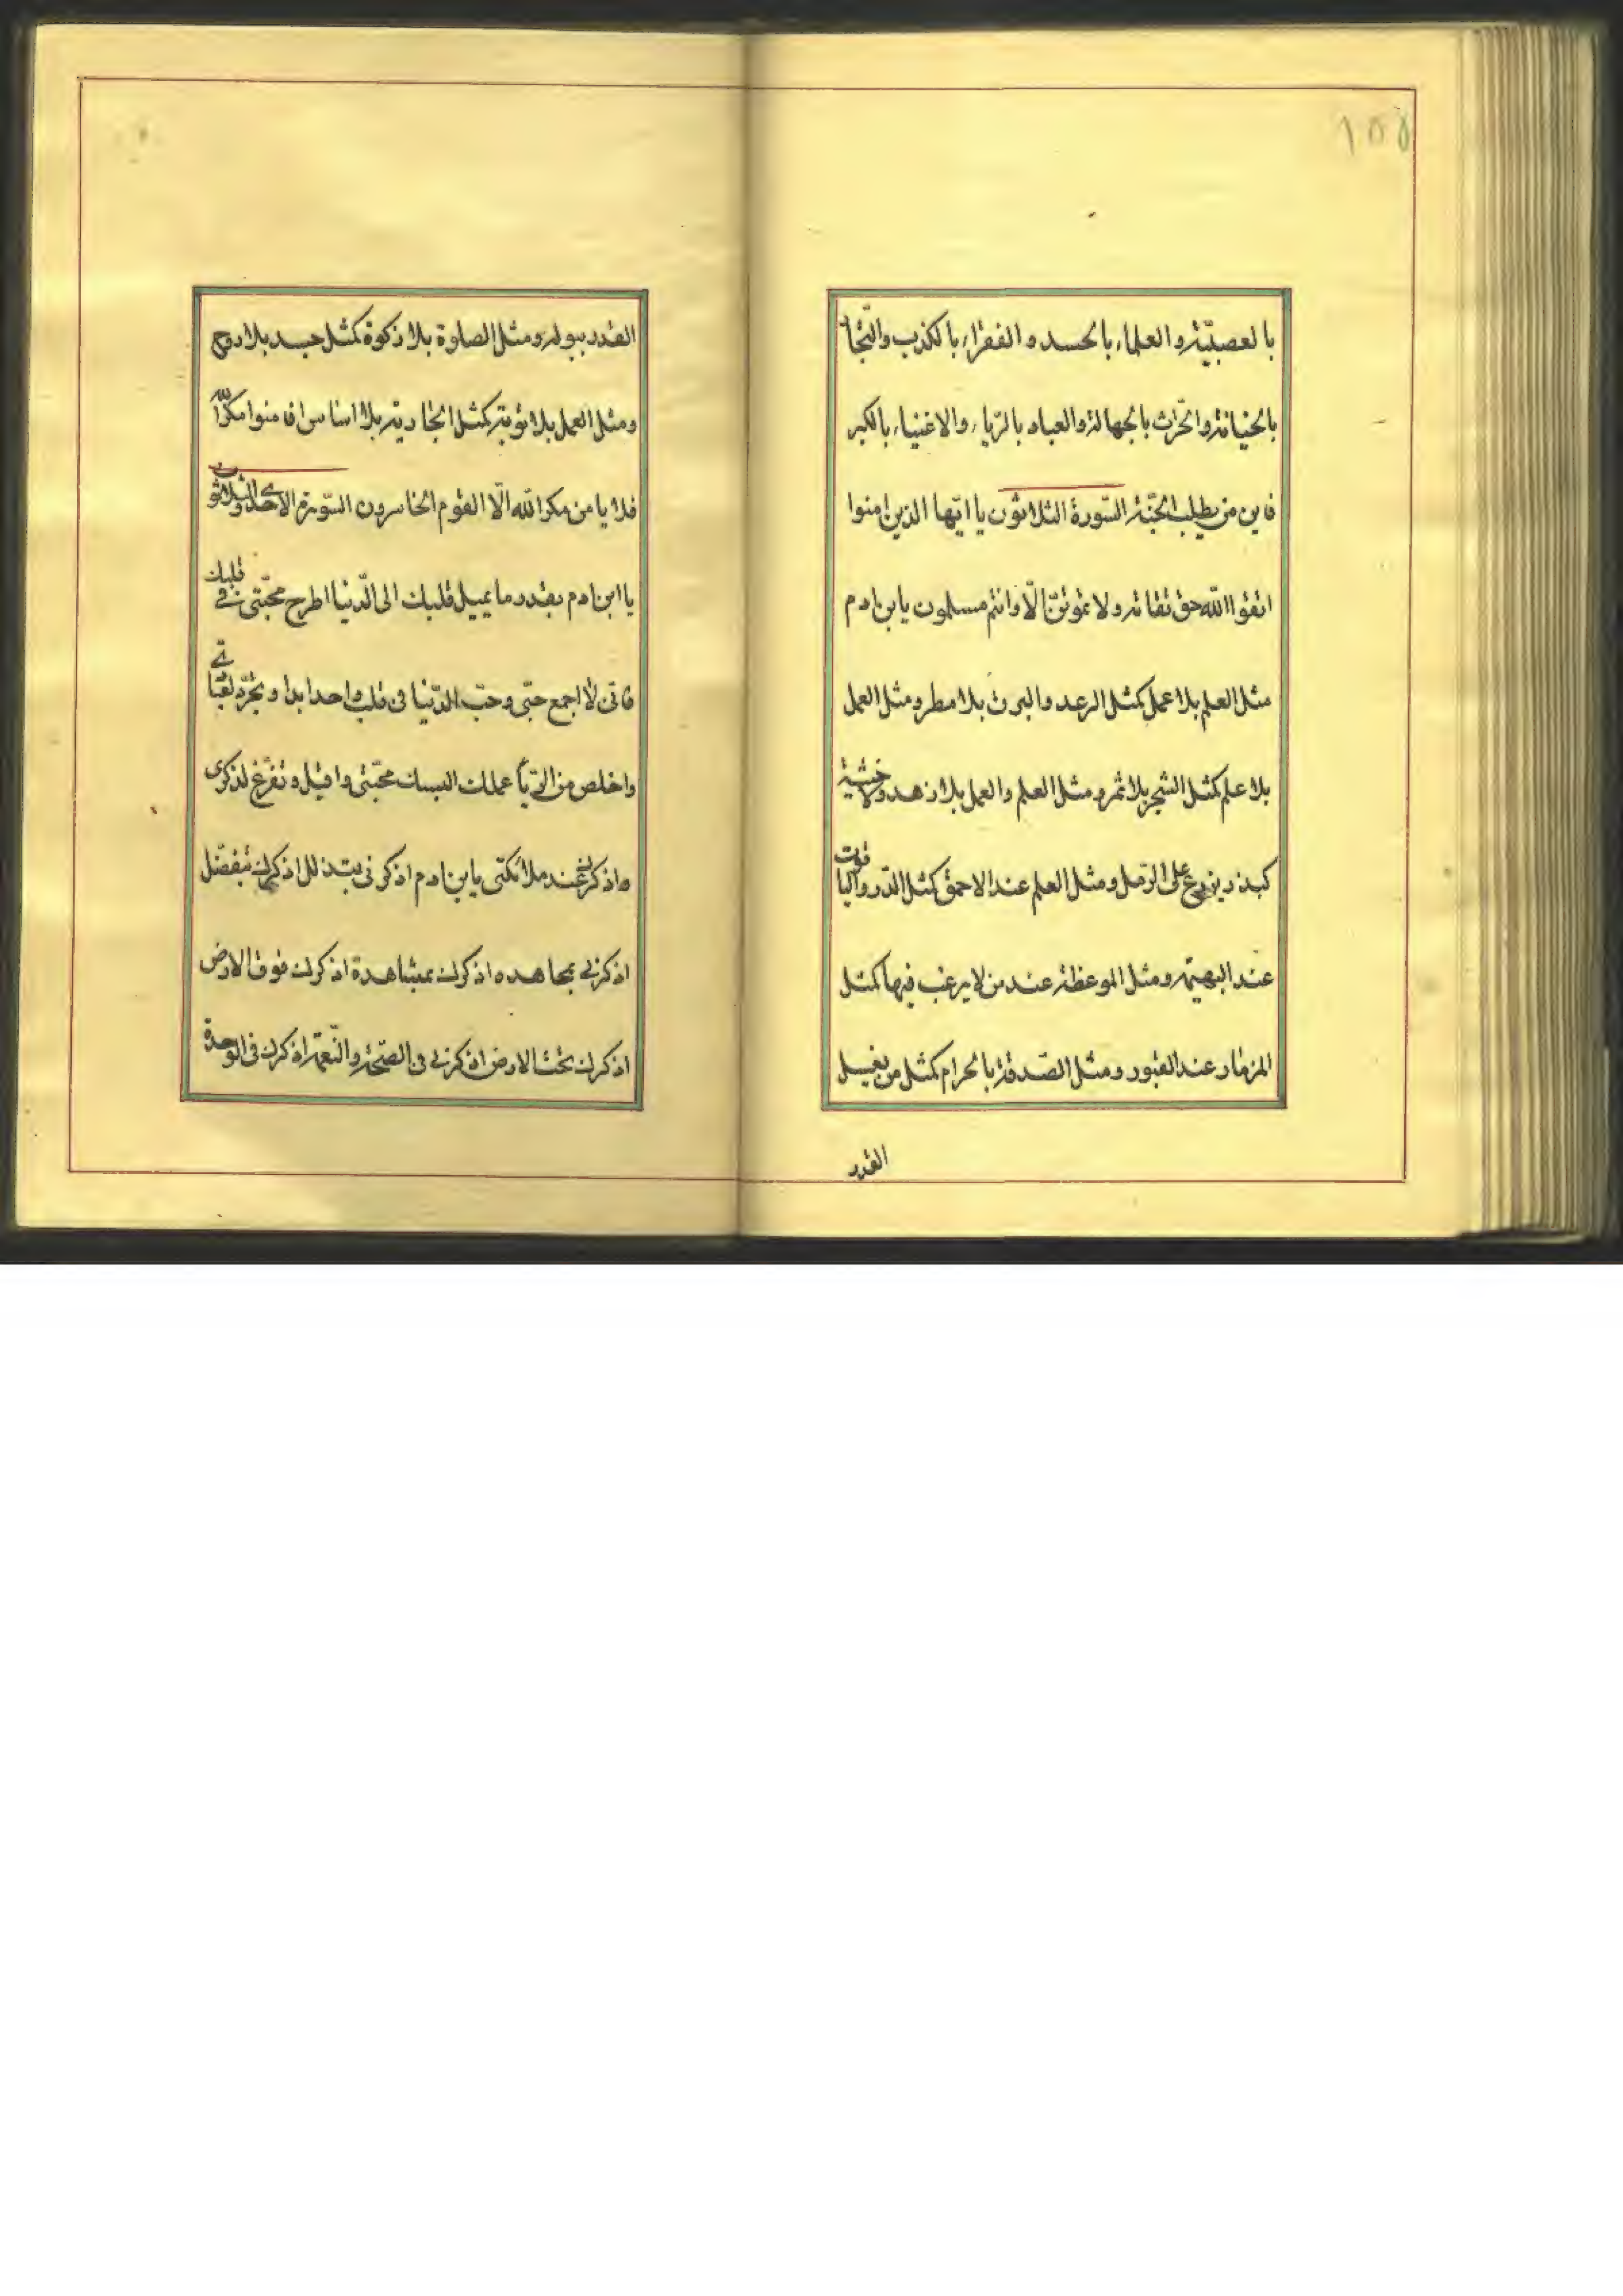 ١٥٥
بالعصبيّة والعلماء بالحسد والفقراء بالكذب والتّجار
بالخيانة والحرّاث بالجهالة والعباد بالرّياء والاغنياء بالكبر
فاين من يطلب الجنّة السّورة الثلاثون يا ايّها الذين امنوا
اتقوا الله حق تقاته ولا تموتنّ الّا وانتم مسلمون يابن ادم
مثل العلم بلا عمل كمثل الرعد والبرق بلا مطر ومثل العمل
بلا علم كمثل الشجر بلا ثمر ومثل العلم والعمل بلا زهد ولا خشية
كبذر يزرع على الرّمل ومثل العلم عند الاحمق كمثل الدّر والياقوت
عند البهيمة ومثل الموعظة عند من لا يرغب فيها كمثل
المزمار عند القبور ومثل الصّدقة بالحرام كمثل من يغسل
القذر
القذر ببوله ومثل الصلوة بلا زكوة كمثل جسد بلا روح
ومثل العمل بلا توبة كمثل بلا اساس افامنوا مكر الله
فلا يامن مكر الله الّا القوم الخاسرون السّورة الاحدى والثلاثون
يا ابن ادم بقدر ما يميل قلبك الى الدّنيا اطرح محبّتى فى قلبك
فانى لا اجمع حبّى وحبّ الدّنيا فى قلب واحد ابدا وتجرّد لعباتى
واخلص من الرّيا عملك البسك محبّتى واقبل وتفرّغ لذكرى
واذكرنى عند ملائكتى يابن ادم اذكرنى بتذلل اذكرك بتفضّل
اذكرنى بمجاهده اذكرك بمشاهدة اذكرك فوق الارض
اذكرك تحت الارض اذكرنى فى الصّحّة والنّعمة اذكرك فى الوحدة